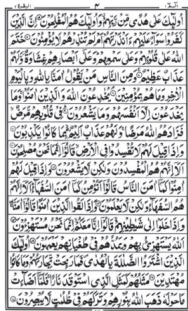 الٓمّٓ ١ ٤ البقرة ٢
اُولٰٓئِكَ عَلٰى هُدًى مِّنْ رَّبِّهِمْ وَاُولٰٓئِكَ هُمُ الْمُفْلِحُوْنَ اِنَّ الَّذِيْنَ
كَفَرُوْا سَوَآءٌ عَلَيْهِمْ ءَاَنْذَرْتَهُمْ اَمْ لَمْ تُنْذِرْهُمْ لَا يُؤْمِنُوْنَ خَتَمَ
اللّٰهُ عَلٰى قُلُوْبِهِمْ وَعَلٰى سَمْعِهِمْ وَعَلٰٓى اَبْصَارِهِمْ غِشَاوَةٌ وَّلَهُمْ
عَذَابٌ عَظِيْمٌ وَمِنَ النَّاسِ مَنْ يَّقُوْلُ اٰمَنَّا بِاللّٰهِ وَبِالْيَوْمِ
الْاٰخِرِ وَمَا هُمْ بِمُؤْمِنِيْنَ يُخٰدِعُوْنَ اللّٰهَ وَالَّذِيْنَ اٰمَنُوْا وَمَا
يَخْدَعُوْنَ اِلَّآ اَنْفُسَهُمْ وَمَا يَشْعُرُوْنَ فِيْ قُلُوْبِهِمْ مَّرَضٌ
فَزَادَهُمُ اللّٰهُ مَرَضًا وَلَهُمْ عَذَابٌ اَلِيْمٌ بِمَا كَانُوْا يَكْذِبُوْنَ
وَاِذَا قِيْلَ لَهُمْ لَا تُفْسِدُوْا فِي الْاَرْضِ قَالُوْٓا اِنَّمَا نَحْنُ مُصْلِحُوْنَ
اَلَآ اِنَّهُمْ هُمُ الْمُفْسِدُوْنَ وَلٰكِنْ لَّا يَشْعُرُوْنَ وَاِذَا قِيْلَ لَهُمْ
اٰمِنُوْا كَمَآ اٰمَنَ النَّاسُ قَالُوْٓا اَنُؤْمِنُ كَمَآ اٰمَنَ السُّفَهَآءُ اَلَآ اِنَّهُمْ
هُمُ السُّفَهَآءُ وَلٰكِنْ لَّا يَعْلَمُوْنَ وَاِذَا لَقُوا الَّذِيْنَ اٰمَنُوْا قَالُوْٓا اٰمَنَّا
وَاِذَا خَلَوْا اِلٰى شَيٰطِيْنِهِمْ قَالُوْٓا اِنَّا مَعَكُمْ اِنَّمَا نَحْنُ مُسْتَهْزِءُوْنَ
اَللّٰهُ يَسْتَهْزِئُ بِهِمْ وَيَمُدُّهُمْ فِيْ طُغْيَانِهِمْ يَعْمَهُوْنَ اُولٰٓئِكَ
الَّذِيْنَ اشْتَرَوُا الضَّلٰلَةَ بِالْهُدٰى فَمَا رَبِحَتْ تِّجَارَتُهُمْ وَمَا كَانُوْا
مُهْتَدِيْنَ مَثَلُهُمْ كَمَثَلِ الَّذِي اسْتَوْقَدَ نَارًا فَلَمَّآ اَضَآءَتْ
مَا حَوْلَهٗ ذَهَبَ اللّٰهُ بِنُوْرِهِمْ وَتَرَكَهُمْ فِيْ ظُلُمٰتٍ لَّا يُبْصِرُوْنَ